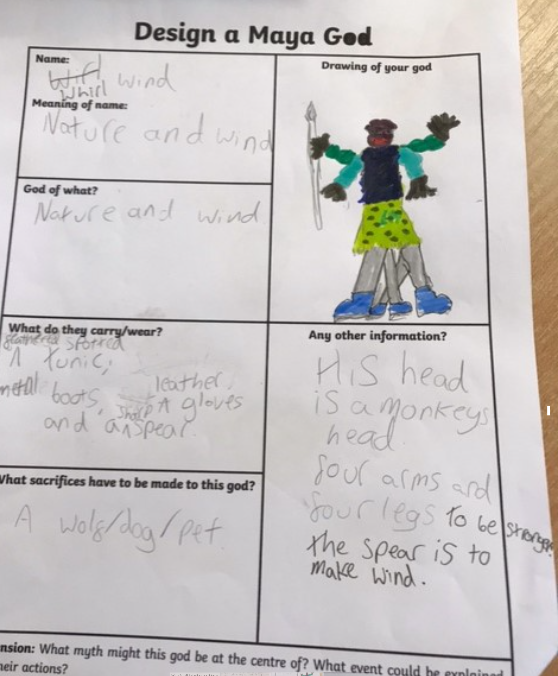 Design a Maya God
Name:
Wirl wind
Whirl
Meaning of name:
Nature and wind
God of what?
Nature and wind
What do they carry/wear?
feathered spotted
A tunic,
metal boots, leather
sharp gloves
and a spear.
What sacrifices have to be made to this god?
A wolf/dog/pet
Drawing of your god
Any other information?
His head
is a monkeys
head.
four arms and
four legs to be stronger
the spear is to
make wind.
nsion: What myth might this god be at the centre of? What event could be explained
heir actions?